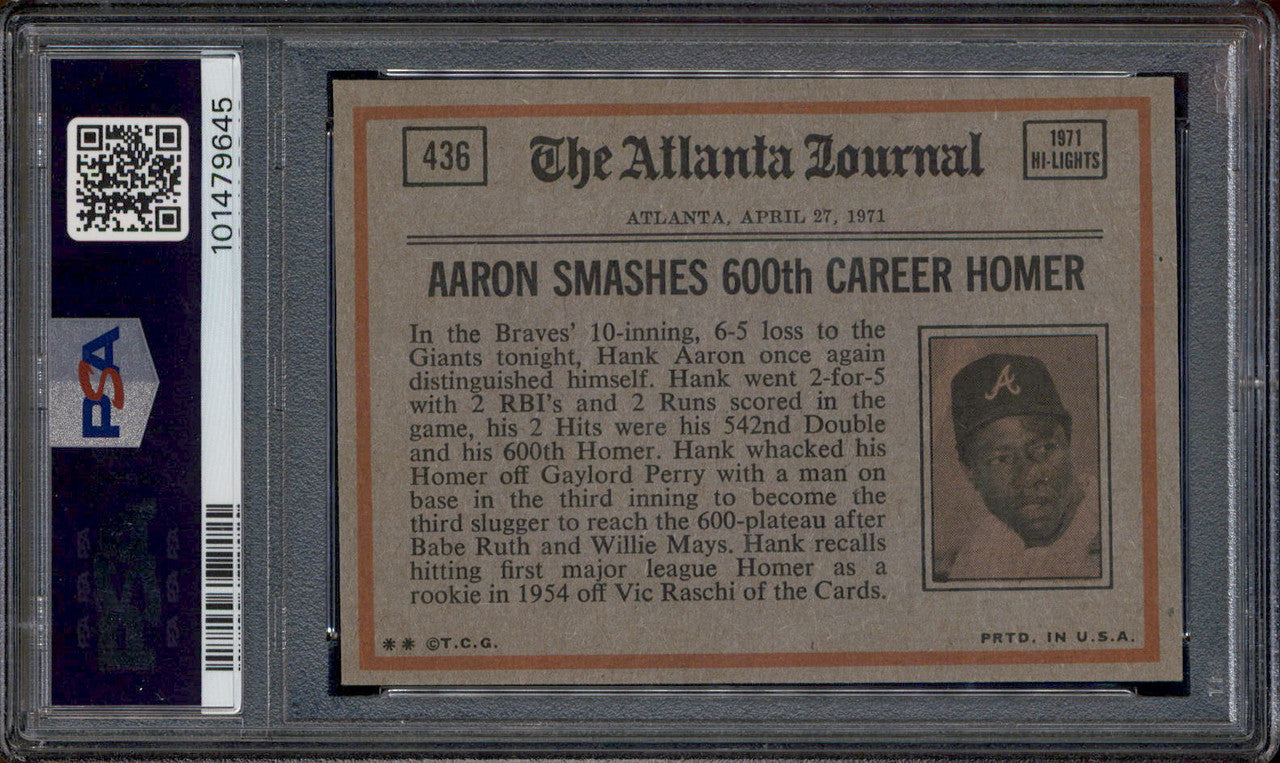 101479645
PSA
436
The Atlanta Journal
1971
HI-LIGHTS
ATLANTA, APRIL 27, 1971
AARON SMASHES 600th CAREER HOMER
In the Braves' 10-inning, 6-5 loss to the
Giants tonight, Hank Aaron once again
distinguished himself. Hank went 2-for-5
with 2 RBI's and 2 Runs scored in the
game, his 2 Hits were his 542nd Double
and his 600th Homer. Hank whacked his
Homer off Gaylord Perry with a man on
base in the third inning to become the
third slugger to reach the 600-plateau after
Babe Ruth and Willie Mays. Hank recalls
hitting first major league Homer as a
rookie in 1954 off Vic Raschi of the Cards.
A
** ©T.C.G.
PRTD. IN U.S.A.